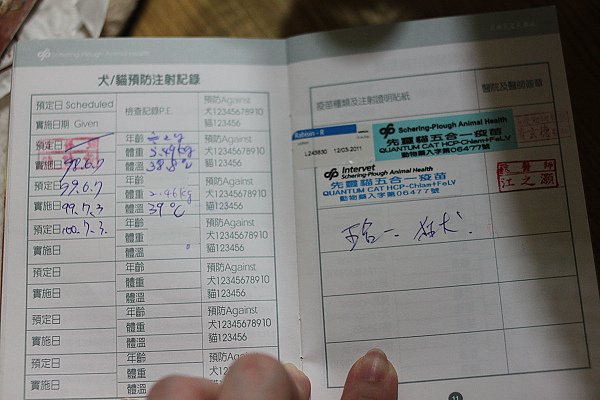 Schering-Plough Animal Health
犬/貓預防注射記錄
預定日 Scheduled
實施日期 Given
檢查記錄P.E.
預防Against
犬12345678910
貓123456
預定日
實施日 98.6.7
年齡
體重 3.49kg
體溫 38.8℃
預防Against
犬12345678910
貓123456
預定日 99.6.7
實施日 99.7.3
年齡
體重
體溫 39℃
預防Against
犬12345678910
貓123456
預定日 100.7.3.
實施日
年齡
體重
體溫
預防Against
犬12345678910
貓123456
預定日
實施日
年齡
體重
體溫
預防Against
犬12345678910
貓123456
預定日
實施日
年齡
體重
體溫
預防Against
犬12345678910
貓123456
預定日
實施日
年齡
體重
體溫
預防Against
犬12345678910
貓123456
疫苗種類及注射證明貼紙
醫院及醫師簽章
Rabisin - R
L243830 12/03/2011
Schering-Plough Animal Health
先靈貓五合一疫苗
QUANTUM CAT HCP-Chlam+FeLV
動物藥入字第06477號
Intervet
Schering-Plough Animal Health
先靈貓五合一疫苗
QUANTUM CAT HCP-Chlam+FeLV
動物藥入字第06477號
獸醫師
江之源
五合一
11